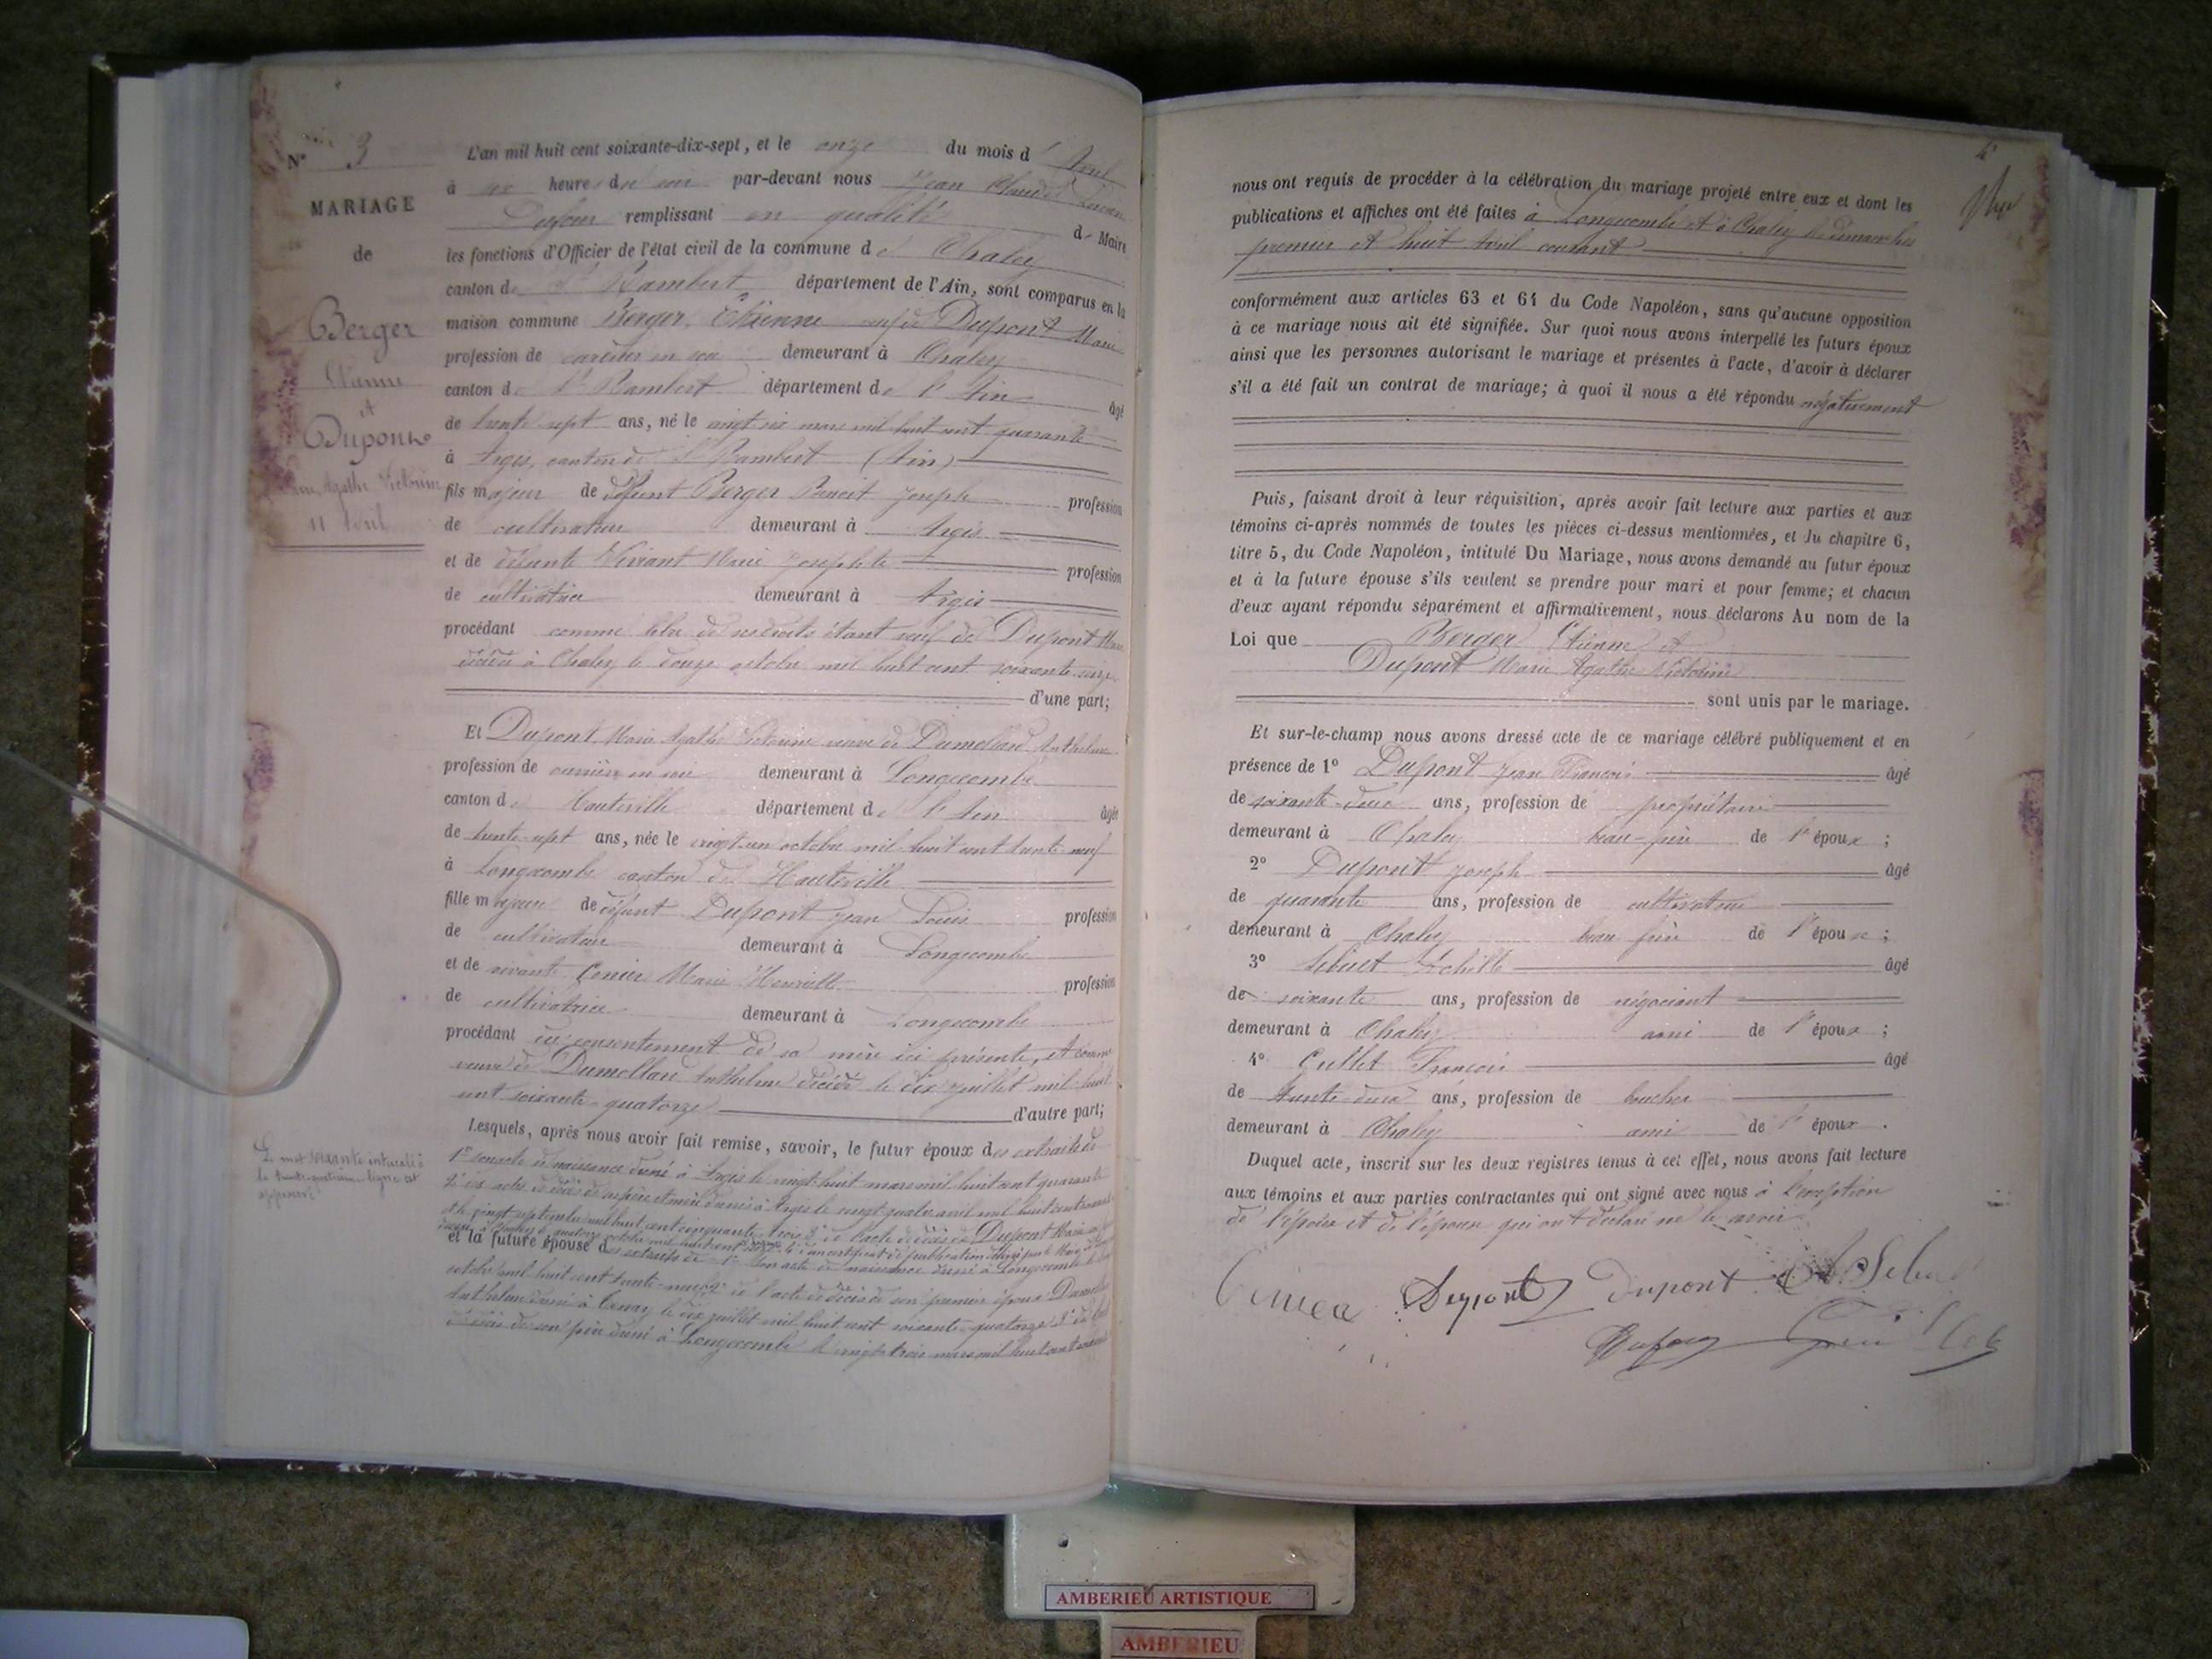 N° 3
MARIAGE
de
Berger
Etienne
et
Dupont
Agathe Victorine
11 Avril
L'an mil huit cent soixante-dix-sept, et le onze du mois d'Avril
à six heures du soir par-devant nous Jean Claude
Dufour remplissant en qualité de Maire
les fonctions d'Officier de l'état civil de la commune de Chaley
canton de St Rambert département de l'Ain, sont comparus en la
maison commune Berger Etienne veuf de Dupont Marie
profession de en soie demeurant à Chaley
canton de St Rambert département de l'Ain âgé
de trente sept ans, né le vingt six mars mil huit cent quarante
à Argis, canton de St Rambert (Ain)
fils majeur de défunt Berger Benoit Joseph profession
de cultivateur demeurant à Argis
et de défunte Marie Josephte profession
de cultivatrice demeurant à Argis
procédant comme libre de ses droits étant veuf de Dupont Marie
décédée à Chaley le douze octobre mil huit cent soixante seize
d'une part;
Et Dupont Marie Agathe Victorine veuve de Dumollard Anthelme
profession de ouvrière en soie demeurant à Longecombe
canton de Hauteville département de l'Ain âgée
de trente-sept ans, née le vingt un octobre mil huit cent trente neuf
à Longecombe canton de Hauteville
fille majeure de défunt Dupont Jean Louis profession
de cultivateur demeurant à Longecombe
et de vivante Marie Henriette profession
de cultivatrice demeurant à Longecombe
procédant du consentement de sa mère ici présente, et comme
veuve de Dumollard Anthelme décédé le dix juillet mil huit
cent soixante-quatorze d'autre part;
Lesquels, après nous avoir fait remise, savoir, le futur époux des extraits de
1° son acte de naissance dressé à Argis le vingt huit mars mil huit cent quarante
2° des actes de décès de ses père et mère dressés à Argis le vingt quatre avril mil huit cent
et le vingt septembre mil huit cent cinquante trois 3° de l'acte de décès de Dupont Marie
dressé à Chaley quatorze octobre mil huit cent 4° d'un certificat de publication
et la future épouse des extraits de 1° son acte de naissance dressé à Longecombe le
octobre mil huit cent trente-neuf 2° de l'acte de décès de son premier époux
Anthelme dressé à Tenay le dix juillet mil huit cent soixante-quatorze 3° de
décès de son père dressé à Longecombe le vingt trois mars mil huit cent
Le mot soixante intercalé à
la trente-quatrième ligne est
approuvé
nous ont requis de procéder à la célébration du mariage projeté entre eux et dont les
publications et affiches ont été faites à Longecombe et à Chaley les dimanches
premier et huit Avril courant
conformément aux articles 63 et 64 du Code Napoléon, sans qu'aucune opposition
à ce mariage nous ait été signifiée. Sur quoi nous avons interpellé les futurs époux
ainsi que les personnes autorisant le mariage et présentes à l'acte, d'avoir à déclarer
s'il a été fait un contrat de mariage; à quoi il nous a été répondu négativement
Puis, faisant droit à leur réquisition, après avoir fait lecture aux parties et aux
témoins ci-après nommés de toutes les pièces ci-dessus mentionnées, et du chapitre 6,
titre 5, du Code Napoléon, intitulé Du Mariage, nous avons demandé au futur époux
et à la future épouse s'ils veulent se prendre pour mari et pour femme; et chacun
d'eux ayant répondu séparément et affirmativement, nous déclarons Au nom de la
Loi que Berger Etienne et
Dupont Marie Agathe Victorine
sont unis par le mariage.
Et sur-le-champ nous avons dressé acte de ce mariage célébré publiquement et en
présence de 1° Dupont Jean François âgé
de soixante-deux ans, profession de propriétaire
demeurant à Chaley beau-père de l'époux ;
2° Dupont Joseph âgé
de quarante ans, profession de cultivateur
demeurant à Chaley beau frère de l'époux ;
3° Achille âgé
de soixante ans, profession de négociant
demeurant à Chaley ami de l'époux ;
4° Cullet François âgé
de trente-deux ans, profession de boucher
demeurant à Chaley ami de l'époux .
Duquel acte, inscrit sur les deux registres tenus à cet effet, nous avons fait lecture
aux témoins et aux parties contractantes qui ont signé avec nous à l'exception
de l'époux et de l'épouse qui ont déclaré ne le savoir
Dupont Dupont
Dufour
AMBERIEU ARTISTIQUE
AMBERIEU